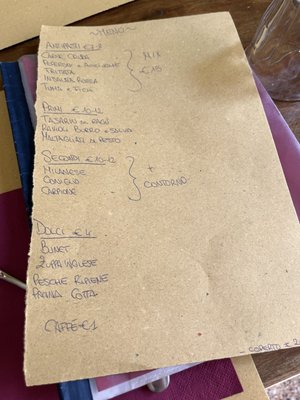 ~MENÙ~
ANTIPASTI €7-8
CARNE CRUDA
PEPERONI E ACCIUGHE
FRITTATA
INSALATA RUSSA
TOMA E FICHI
MIX
€15
PRIMI €10-12
TAJARIN AL RAGÙ
RAVIOLI BURRO E SALVIA
MALTAGLIATI AL PESTO
SECONDI €10-12
MILANESE
CONIGLIO
CARPIONE
+
CONTORNO
DOLCI €4
BUNET
ZUPPA INGLESE
PESCHE RIPIENE
PANNA COTTA
CAFFÈ €1
- COPERTO € 2